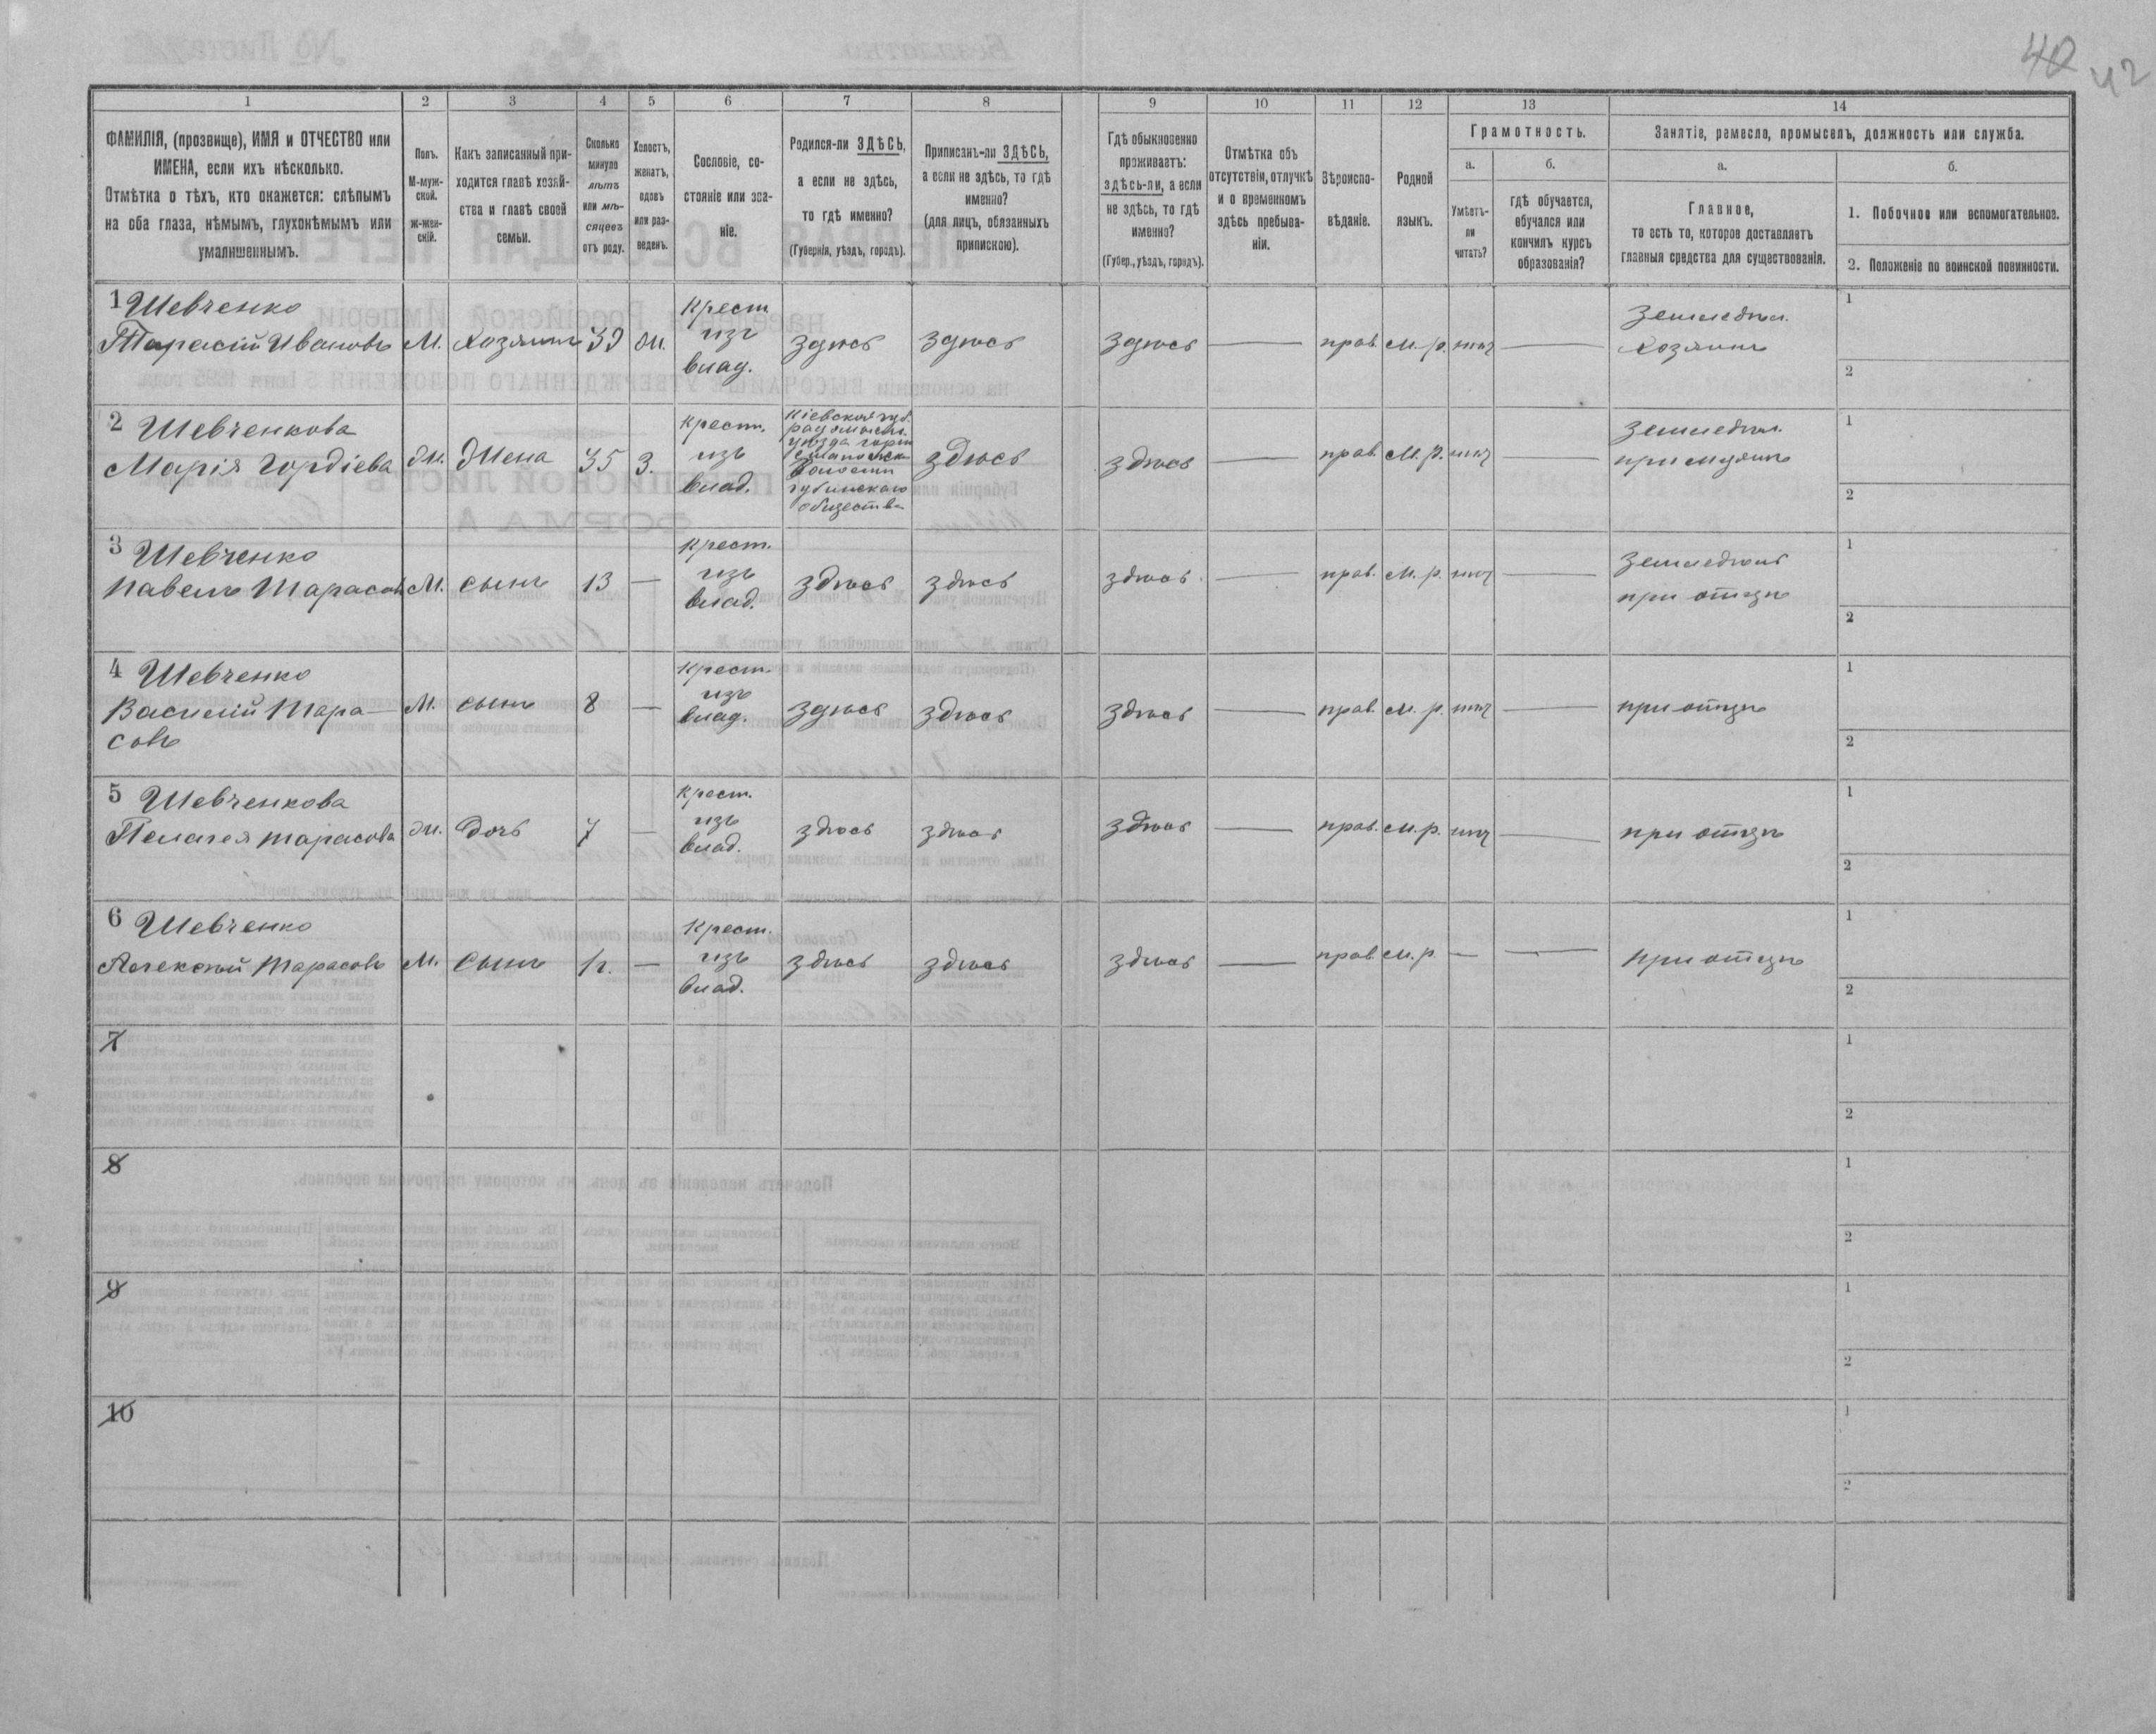 40 42
1 2 3 4 5 6 7 8 9 10 11 12 13 14
ФАМИЛІЯ, (прозвище), ИМЯ и ОТЧЕСТВО или
ИМЕНА, если ихъ нѣсколько.
Отмѣтка о тѣхъ, кто окажется: слѣпымъ
на оба глаза, нѣмымъ, глухонѣмымъ или
умалишеннымъ.
Полъ.
М-муж-
ской.
ж-жен-
скій.
Какъ записанный при-
ходится главѣ хозяй-
ства и главѣ своей
семьи.
Сколько
минуло
лѣтъ
или мѣ-
сяцевъ
отъ роду.
Холостъ,
женатъ,
вдовъ
или раз-
веденъ.
Сословіе, со-
стояніе или зва-
ніе.
Родился-ли ЗДѢСЬ,
а если не здѣсь,
то гдѣ именно?
(Губернія, уѣздъ, городъ).
Приписанъ-ли ЗДѢСЬ,
а если не здѣсь, то гдѣ
именно?
(для лицъ, обязанныхъ
припискою).
Гдѣ обыкновенно
проживаетъ:
здѣсь-ли, а если
не здѣсь, то гдѣ
именно?
(Губер., уѣздъ, городъ).
Отмѣтка объ
отсутствіи, отлучкѣ
и о временномъ
здѣсь пребыва-
ніи.
Вѣроиспо-
вѣданіе.
Родной
языкъ.
Грамотность.
а.
Умѣетъ-
ли
читать?
б.
гдѣ обучается,
обучался или
кончилъ курсъ
образованія?
Занятіе, ремесло, промыселъ, должность или служба.
а.
Главное,
то есть то, которое доставляетъ
главныя средства для существованія.
б.
1. Побочное или вспомогательное.
2. Положеніе по воинской повинности.
1 Шевченко
Тарасій Ивановъ М. Хозяинъ 39 ж. Крест. изъ влад. здѣсь здѣсь здѣсь — прав. м. р. нѣт — Земледѣл. Хозяинъ
1
2
2 Шевченкова
Марія Гордіева ж. Жена 35 З. Крест. изъ влад.
Кіевской губ.
радомысл.
уѣзда
волости
общества
здѣсь здѣсь — прав. м. р. нѣт — Земледѣл. при мужѣ
1
2
3 Шевченко
Павелъ Тарасовъ М. сынъ 13 — Крест. изъ влад. здѣсь здѣсь здѣсь — прав. м. р. нѣт — Земледѣлъ при отцѣ
1
2
4 Шевченко
Василій Тара-
совъ М. сынъ 8 — Крест. изъ влад. здѣсь здѣсь здѣсь — прав. м. р. нѣт — при отцѣ
1
2
5 Шевченкова
Пелагея Тарасова ж. дочь 7 — Крест. изъ влад. здѣсь здѣсь здѣсь — прав. м. р. нѣт — при отцѣ
1
2
6 Шевченко
Алексѣй Тарасовъ М. Сынъ 1г. — Крест. изъ влад. здѣсь здѣсь здѣсь — прав. м. р. — — при отцѣ
1
2
7
1
2
8
1
2
9
1
2
10
1
2